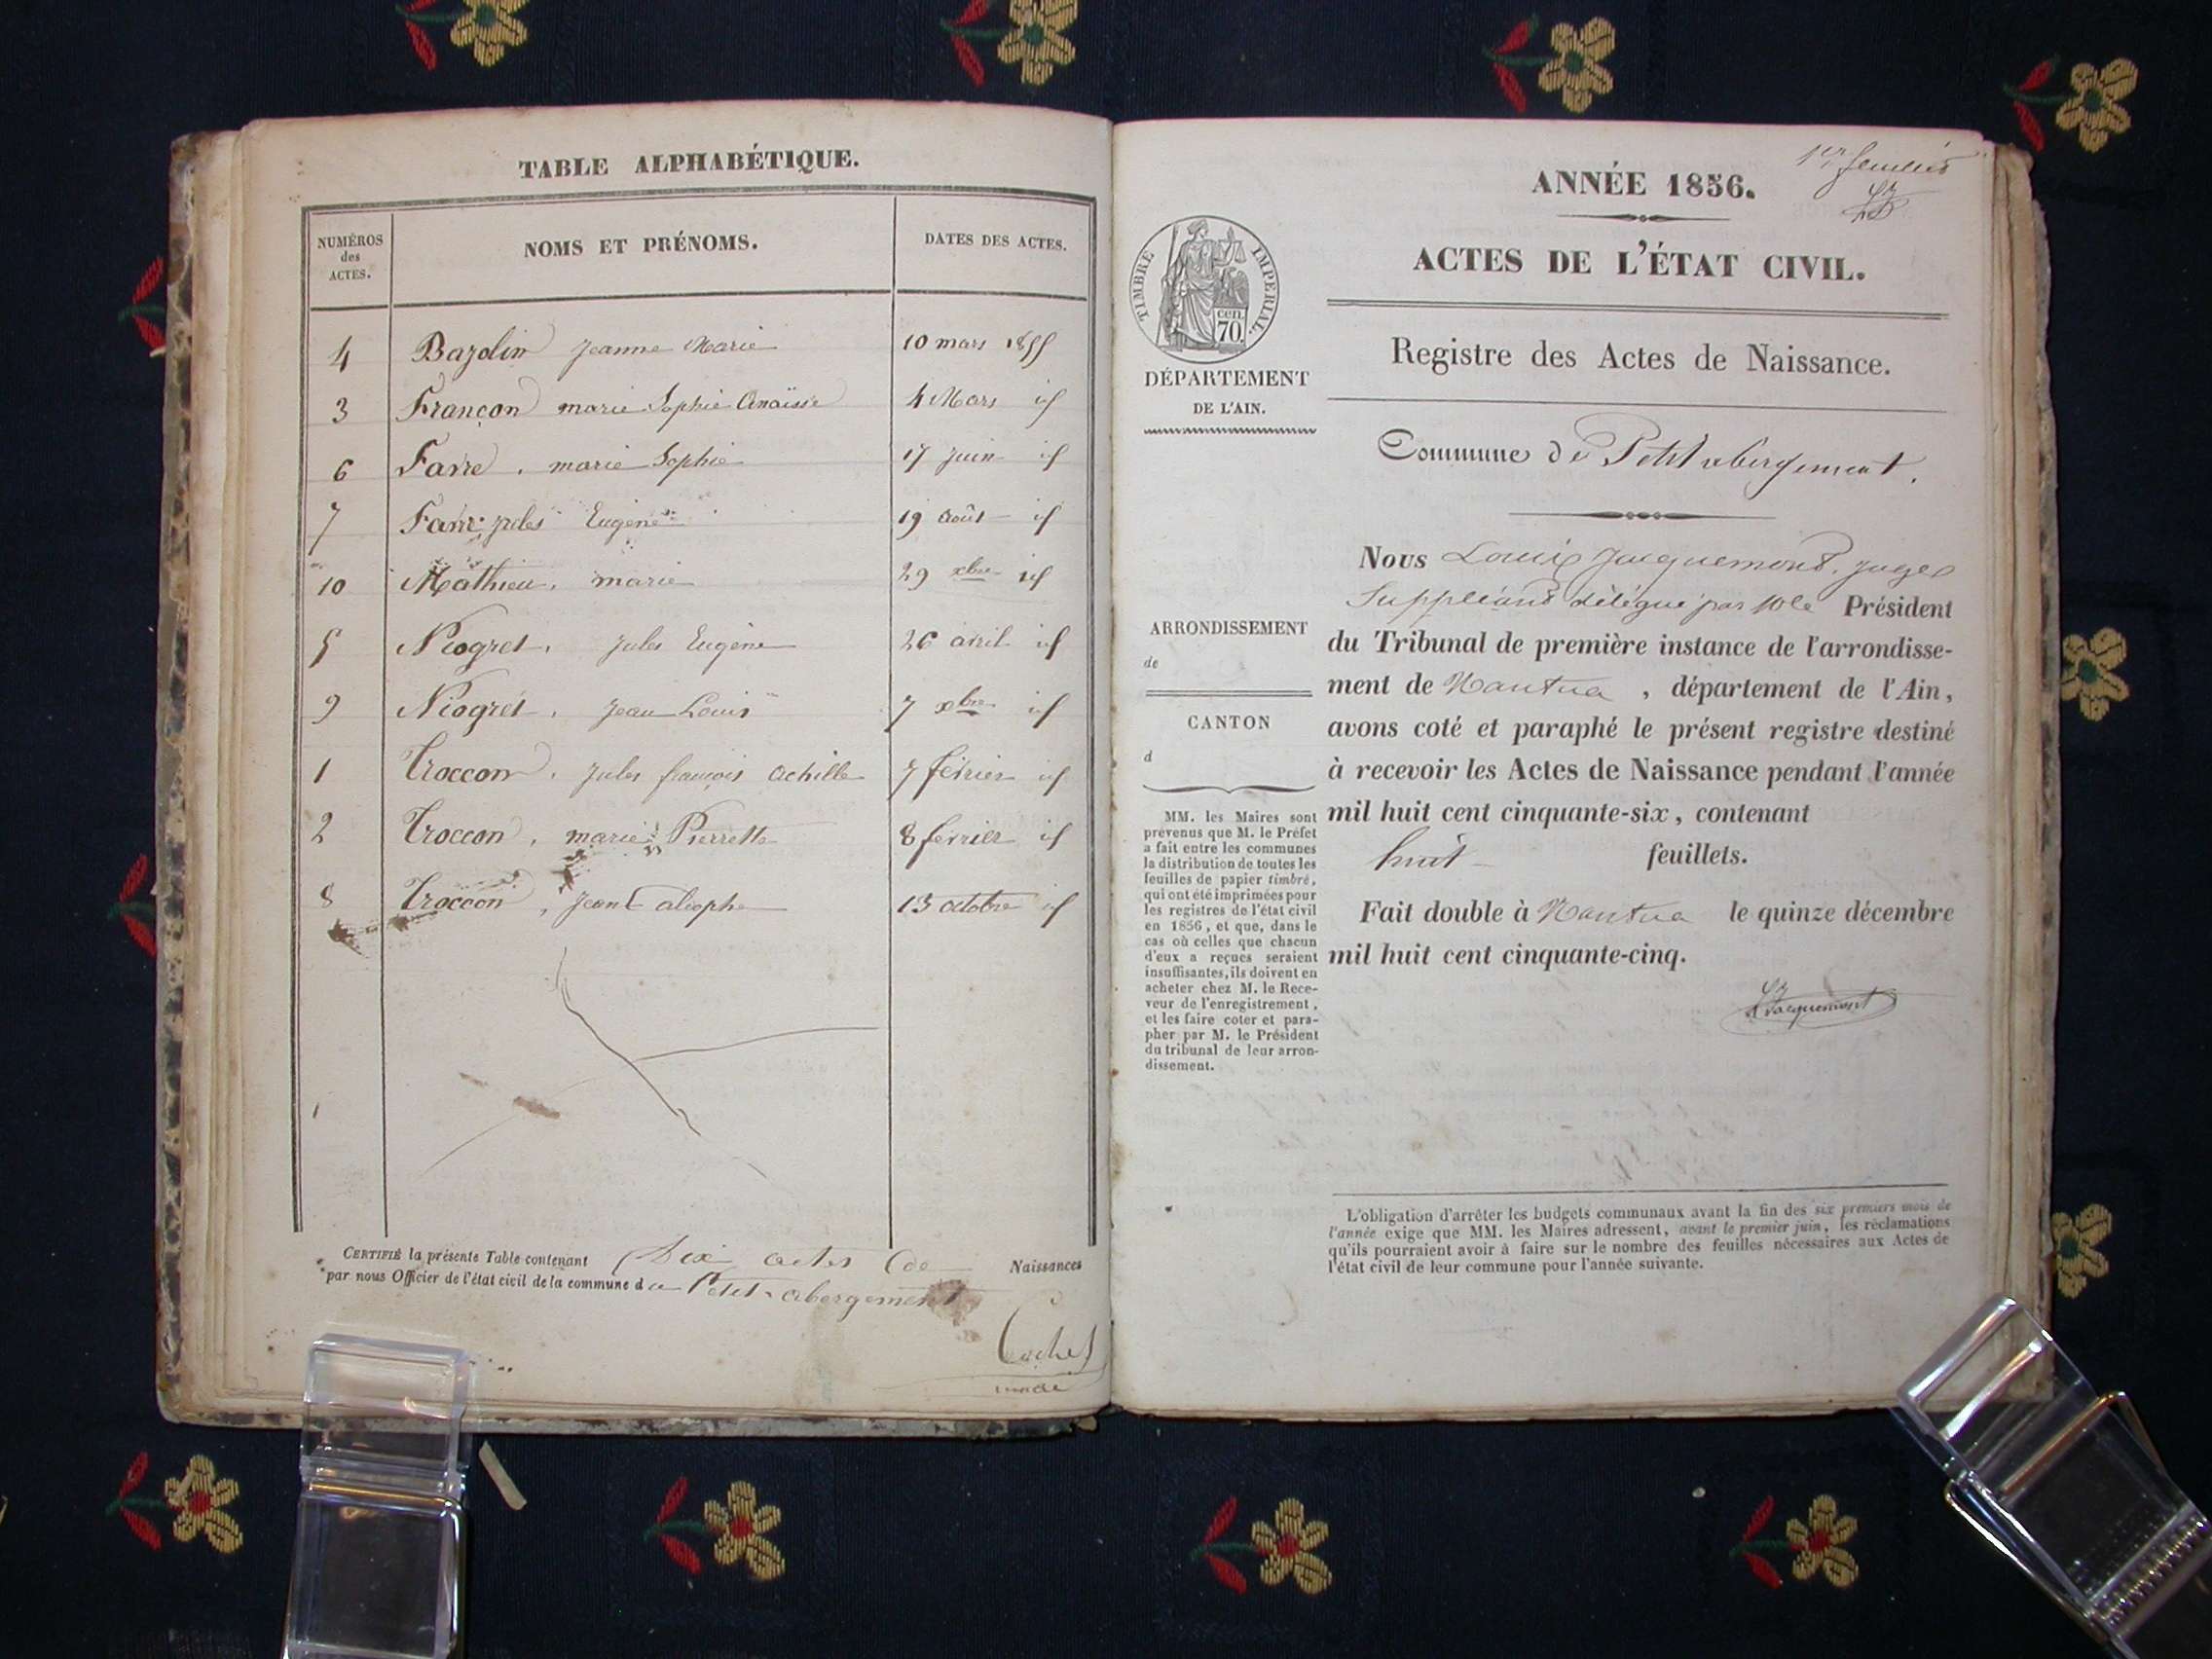 TABLE ALPHABÉTIQUE.
NUMÉROS des ACTES.
NOMS ET PRÉNOMS.
DATES DES ACTES.
4 Bazolin Jeanne Marie 10 mars 1855
3 Françon marie Sophie Anaïsse 4 Mars id
6 Favre, marie Sophie 17 juin id
7 Favre jules Eugène 19 août id
10 Mathieu, marie 29 xbre id
5 Niogret, Jules Eugène 26 avril id
9 Niogret, Jean Louis 7 xbre id
1 Troccon, Jules françois achille 7 février id
2 Troccon, marie Pierrette 8 février id
8 Troccon, Jean 13 octobre id
CERTIFIÉ la présente Table contenant Dix actes de Naissances
par nous Officier de l'état civil de la commune de Petit-abergement
1er feuillet
ANNÉE 1856.
ACTES DE L'ÉTAT CIVIL.
Registre des Actes de Naissance.
Commune de Petit abergement.
TIMBRE IMPÉRIAL.
70 cen.
DÉPARTEMENT
DE L'AIN.
ARRONDISSEMENT
de
CANTON
d
MM. les Maires sont
prévenus que M. le Préfet
a fait entre les communes
la distribution de toutes les
feuilles de papier timbré,
qui ont été imprimées pour
les registres de l'état civil
en 1856, et que, dans le
cas où celles que chacun
d'eux a reçues seraient
insuffisantes, ils doivent en
acheter chez M. le Rece-
veur de l'enregistrement,
et les faire coter et para-
pher par M. le Président
du tribunal de leur arron-
dissement.
Nous Louis Jacquemont, juge
Suppléant délégué par Mr le Président
du Tribunal de première instance de l'arrondisse-
ment de Nantua, département de l'Ain,
avons coté et paraphé le présent registre destiné
à recevoir les Actes de Naissance pendant l'année
mil huit cent cinquante-six, contenant
huit feuillets.
Fait double à Nantua le quinze décembre
mil huit cent cinquante-cinq.
L Jacquemont
L'obligation d'arrêter les budgets communaux avant la fin des six premiers mois de
l'année exige que MM. les Maires adressent, avant le premier juin, les réclamations
qu'ils pourraient avoir à faire sur le nombre des feuilles nécessaires aux Actes de
l'état civil de leur commune pour l'année suivante.